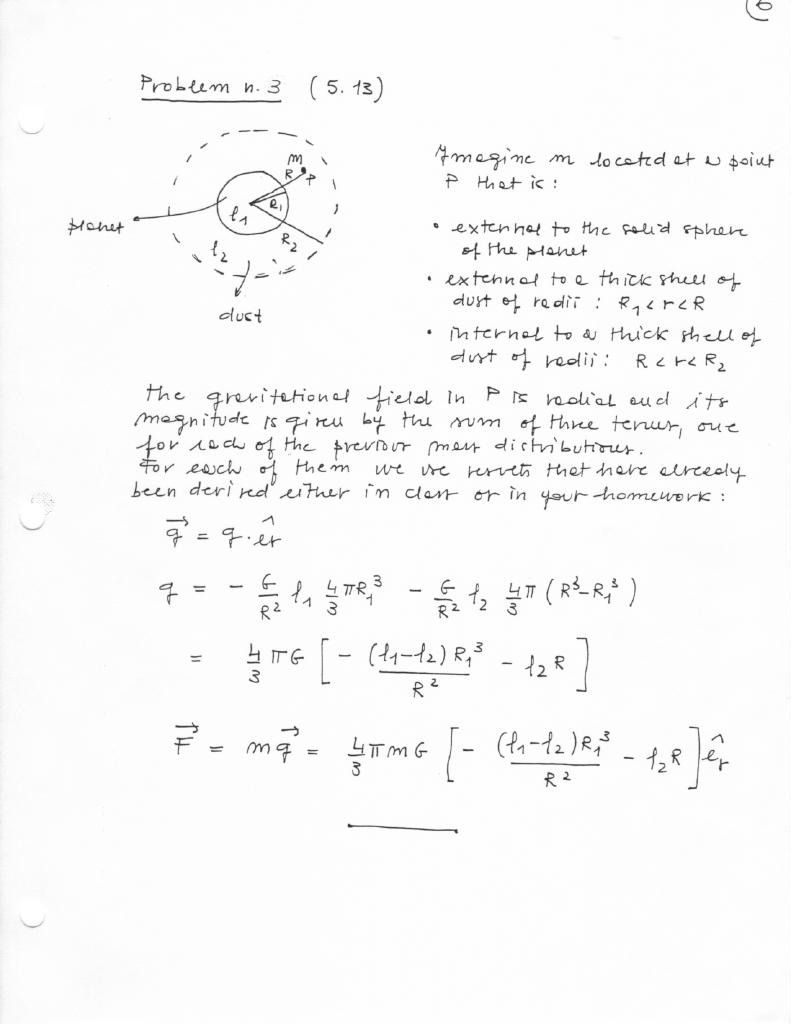 6
Problem n. 3 (5. 13)
m
R
P
ρ1
R1
R2
ρ2
planet
dust
Imagine m located at a point
P that is :
• external to the solid sphere
of the planet
• external to a thick shell of
dust of radii : R1 < r < R
• internal to a thick shell of
dust of radii : R < r < R2
The gravitational field in P is radial and its
magnitude is given by the sum of three terms, one
for each of the previous mass distributions.
For each of them we use results that have already
been derived either in class or in your homework :
g⃗ = g · êr
g = - G/R² ρ1 4/3 πR1³ - G/R² ρ2 4/3 π (R³-R1³)
= 4/3 πG [ - (ρ1-ρ2) R1³/R² - ρ2 R ]
F⃗ = m g⃗ = 4/3 π m G [ - (ρ1-ρ2) R1³/R² - ρ2 R ] êr